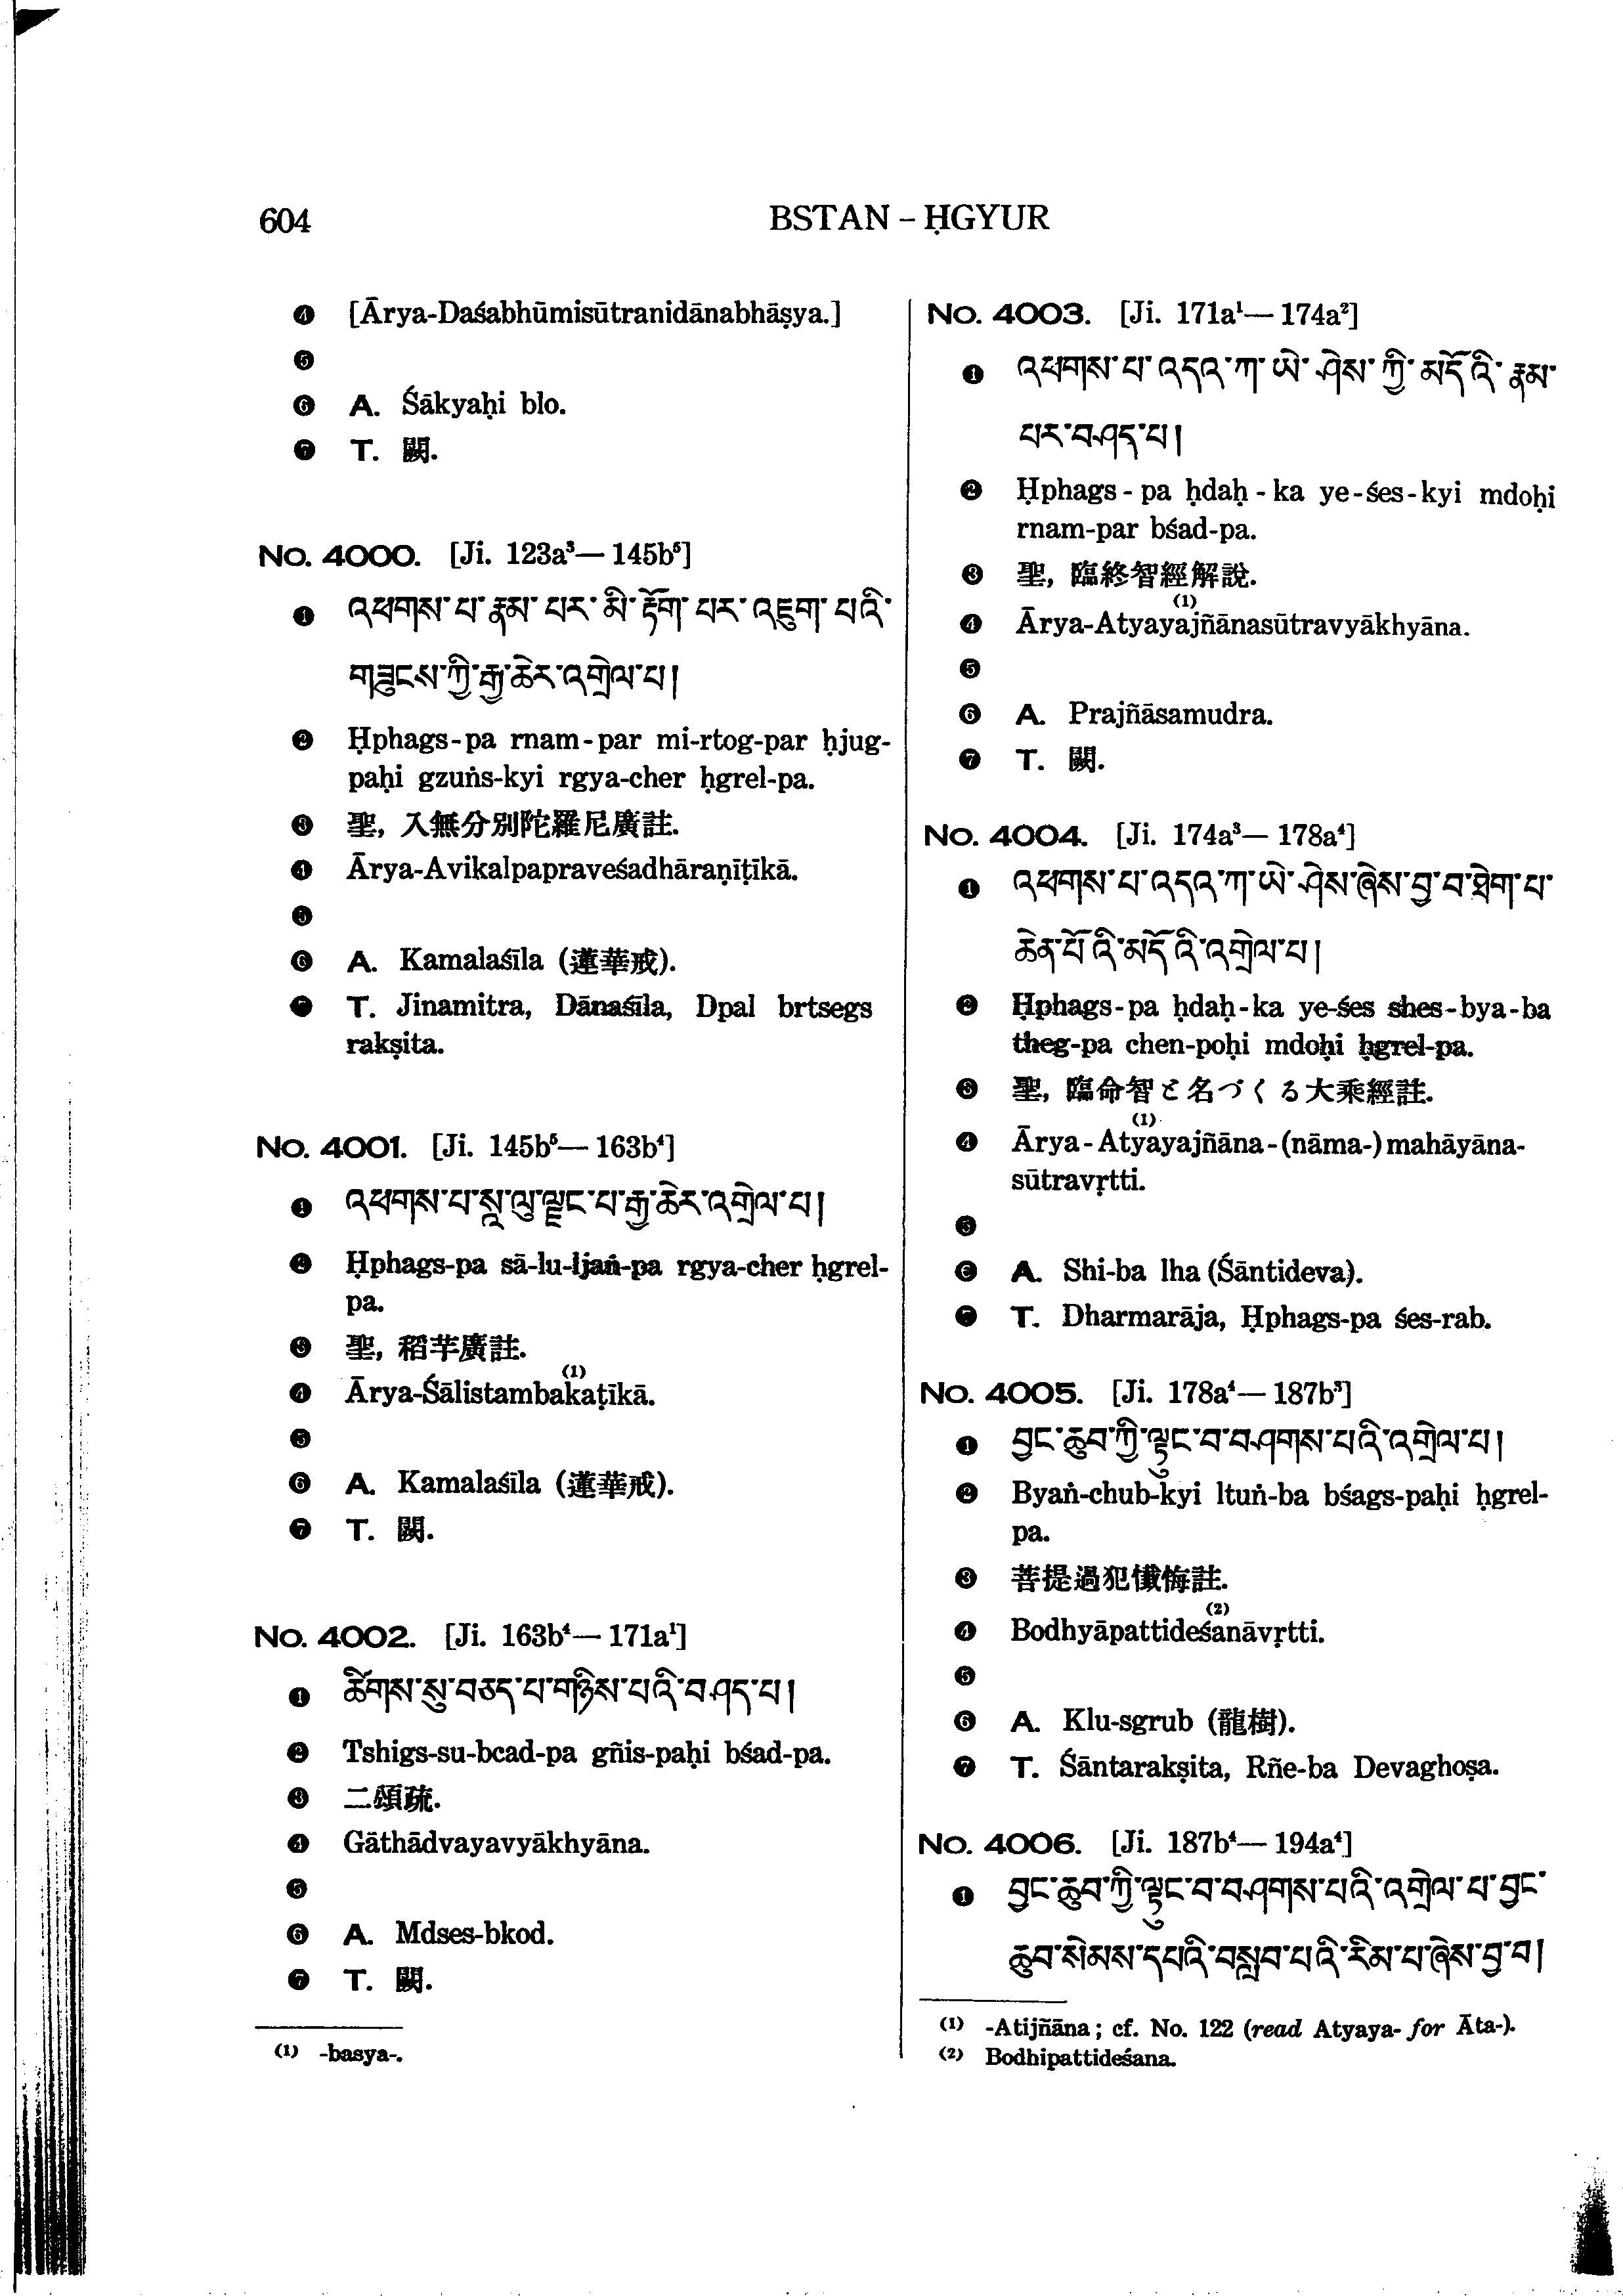 604
BSTAN – ḤGYUR
❹ [Ārya-Daśabhūmisūtranidānabhāṣya.]
❺
❻ A. Śākyaḥi blo.
❼ T. 闕.
No. 4000. [Ji. 123a³— 145b⁵]
❶ འཕགས་པ་རྣམ་པར་མི་རྟོག་པར་འཇུག་པའི་
གཟུངས་ཀྱི་རྒྱ་ཆེར་འགྲེལ་པ།
❷ Ḥphags-pa rnam-par mi-rtog-par ḥjug-
paḥi gzuṅs-kyi rgya-cher ḥgrel-pa.
❸ 聖, 入無分別陀羅尼廣註.
❹ Ārya-Avikalpapraveśadhāraṇīṭīkā.
❺
❻ A. Kamalaśīla (蓮華戒).
❼ T. Jinamitra, Dānaśīla, Dpal brtsegs
rakṣita.
No. 4001. [Ji. 145b⁵— 163b⁴]
❶ འཕགས་པ་སཱ་ལུ་ལྗང་པ་རྒྱ་ཆེར་འགྲེལ་པ།
❷ Ḥphags-pa sā-lu-ljaṅ-pa rgya-cher ḥgrel-
pa.
❸ 聖, 稻芉廣註.
❹ Ārya-Śālistambaka⁽¹⁾ṭīkā.
❺
❻ A. Kamalaśīla (蓮華戒).
❼ T. 闕.
No. 4002. [Ji. 163b⁴— 171a¹]
❶ ཚིགས་སུ་བཅད་པ་གཉིས་པའི་བཤད་པ།
❷ Tshigs-su-bcad-pa gñis-paḥi bśad-pa.
❸ 二頌疏.
❹ Gāthādvayavyākhyāna.
❺
❻ A. Mdses-bkod.
❼ T. 闕.
⁽¹⁾ -basya-.
No. 4003. [Ji. 171a¹— 174a²]
❶ འཕགས་པ་འདའ་ཀ་ཡེ་ཤེས་ཀྱི་མདོའི་རྣམ་
པར་བཤད་པ།
❷ Ḥphags-pa ḥdaḥ-ka ye-śes-kyi mdoḥi
rnam-par bśad-pa.
❸ 聖, 臨終智經解說.
❹ Ārya-Atyaya⁽¹⁾jñānasūtravyākhyāna.
❺
❻ A. Prajñāsamudra.
❼ T. 闕.
No. 4004. [Ji. 174a³— 178a⁴]
❶ འཕགས་པ་འདའ་ཀ་ཡེ་ཤེས་ཞེས་བྱ་བ་ཐེག་པ་
ཆེན་པོའི་མདོའི་འགྲེལ་པ།
❷ Ḥphags-pa ḥdaḥ-ka ye-śes shes-bya-ba
theg-pa chen-poḥi mdoḥi ḥgrel-pa.
❸ 聖, 臨命智と名づくる大乘經註.
❹ Ārya-Atyaya⁽¹⁾jñāna-(nāma-)mahāyāna-
sūtravṛtti.
❺
❻ A. Shi-ba lha (Śāntideva).
❼ T. Dharmarāja, Ḥphags-pa śes-rab.
No. 4005. [Ji. 178a⁴— 187b³]
❶ བྱང་ཆུབ་ཀྱི་ལྟུང་བ་བཤགས་པའི་འགྲེལ་པ།
❷ Byaṅ-chub-kyi ltuṅ-ba bśags-paḥi ḥgrel-
pa.
❸ 菩提過犯懺悔註.
❹ Bodhyāpattideśa⁽²⁾nāvṛtti.
❺
❻ A. Klu-sgrub (龍樹).
❼ T. Śāntarakṣita, Rñe-ba Devaghoṣa.
No. 4006. [Ji. 187b⁴— 194a⁴]
❶ བྱང་ཆུབ་ཀྱི་ལྟུང་བ་བཤགས་པའི་འགྲེལ་པ་བྱང་
ཆུབ་སེམས་དཔའི་བསླབ་པའི་རིམ་པ་ཞེས་བྱ་བ།
⁽¹⁾ -Atijñāna; cf. No. 122 (read Atyaya- for Āta-).
⁽²⁾ Bodhipattideśana.